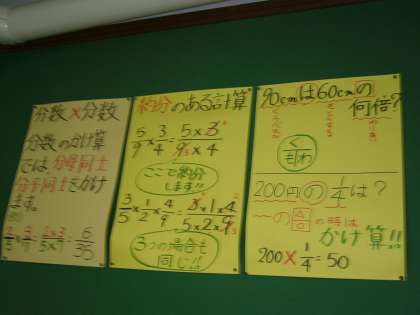 分数×分数
分数のかけ算
では分母同士
分子同士をかけ
ます。
2/5×3/7=2×3/5×7=6/35
約分のある計算
5/9×3/4=5×3/9×4
ここで約分
します!!
3/5×1/2×4/9=3×1×4/5×2×9
3つの場合も
同じ!!
90cmは60cmの
何倍?
くらべる
もとにする
わりあい
く
も|わ
200円の1/4は?
〜の△/○の時は
かけ算!!
200×1/4=50